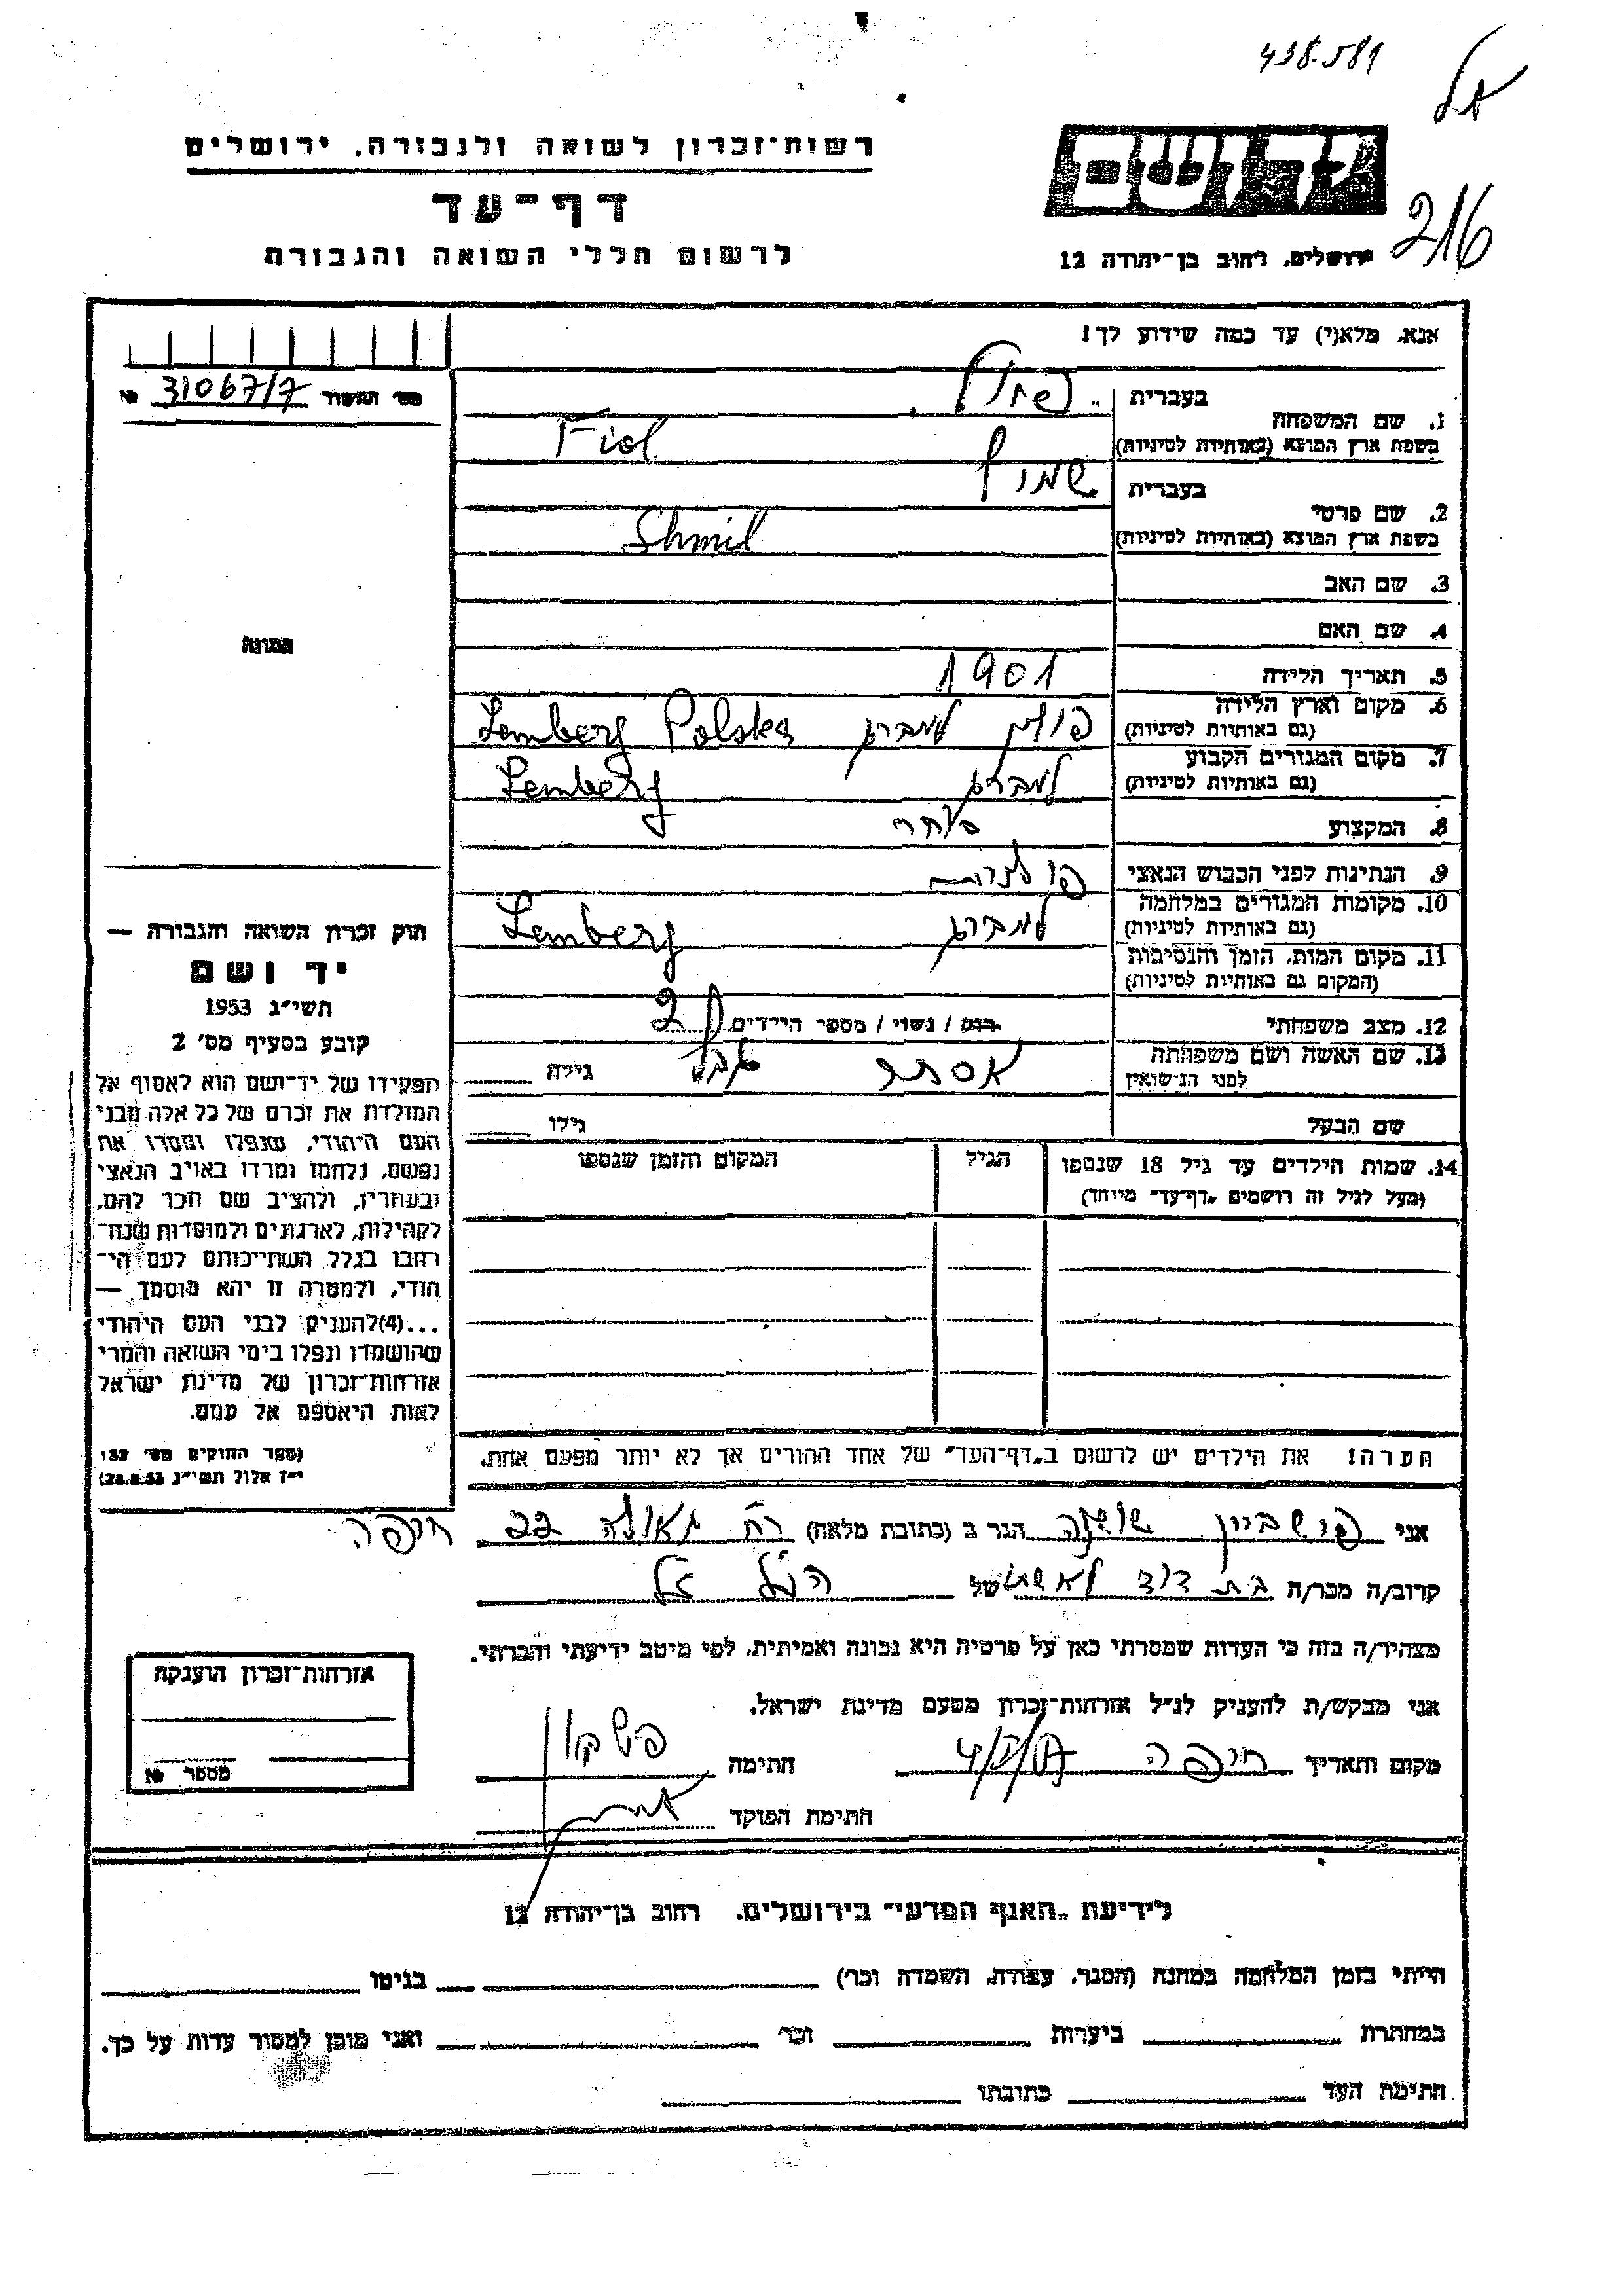 438.581
רשות־זכרון לשואה ולגבורה, ירושלים
דף־עד
לרשום חללי השואה והגבורה
ירושלים, רחוב בן־יהודה 12
216
אנא, מלא(י) עד כמה שידוע לך!
מס' התשור № 31067/7
1. שם המשפחה
בעברית
בשפת ארץ המוצא (באותיות לטיניות) Fiol
2. שם פרטי
בעברית שמיל
בשפת ארץ המוצא (באותיות לטיניות) Shmil
3. שם האב
4. שם האם
התמונה
5. תאריך הלידה 1901
6. מקום וארץ הלידה (גם באותיות לטיניות) פולין למברג Lemberg Polska
7. מקום המגורים הקבוע (גם באותיות לטיניות) למברג Lemberg
8. המקצוע סוחר
9. הנתינות לפני הכבוש הנאצי פולנית
10. מקומות המגורים במלחמה (גם באותיות לטיניות) למברג Lemberg
11. מקום המות, הזמן והנסיבות (המקום גם באותיות לטיניות)
12. מצב משפחתי רווק / נשוי / מספר הילדים 2
13. שם האשה ושם משפחתה לפני הנישואין אסתר גילה
שם הבעל גילו
14. שמות הילדים עד גיל 18 שנספו
(מעל לגיל זה רושמים "דף־עד" מיוחד)
הגיל
המקום והזמן שנספו
חוק זכרון השואה והגבורה —
יד ושם
תשי"ג 1953
קובע בסעיף מס' 2
תפקידו של יד־ושם הוא לאסוף אל
המולדת את זכרם של כל אלה מבני
העם היהודי, שנפלו ומסרו את
נפשם, נלחמו ומרדו באויב הנאצי
ובעוזריו, ולהציב שם וזכר להם,
לקהילות, לארגונים ולמוסדות שנח־
רבו בגלל השתייכותם לעם הי־
הודי, ולמטרה זו יהא מוסמך —
...(4)להעניק לבני העם היהודי
שהושמדו ונפלו בימי השואה והמרי
אזרחות־זכרון של מדינת ישראל
לאות היאספם אל עמם.
(ספר החוקים מס' 132
י"ז אלול תשי"ג 28.8.53)
הערה! את הילדים יש לרשום ב"דף־העד" של אחד ההורים אך לא יותר מפעם אחת.
אני פישביין שושנה הגר ב (כתובת מלאה) רח' גאולה 22 חיפה
קרוב/ה מכר/ה בת דוד לאשתו של הנ"ל ז"ל
מצהיר/ה בזה כי העדות שמסרתי כאן על פרטיה היא נכונה ואמיתית, לפי מיטב ידיעתי והכרתי.
אני מבקש/ת להעניק לנ"ל אזרחות־זכרון מטעם מדינת ישראל.
מקום ותאריך חיפה חתימה
חתימת הפוקד
אזרחות־זכרון הוענקה
מספר №
לידיעת "האגף המדעי" בירושלים, רחוב בן־יהודה 12
הייתי בזמן המלחמה במחנה (הסגר, עבודה, השמדה וכו') בגיטו
במחתרת ביערות וכו' ואני מוכן למסור עדות על כך.
חתימת העד כתובתו